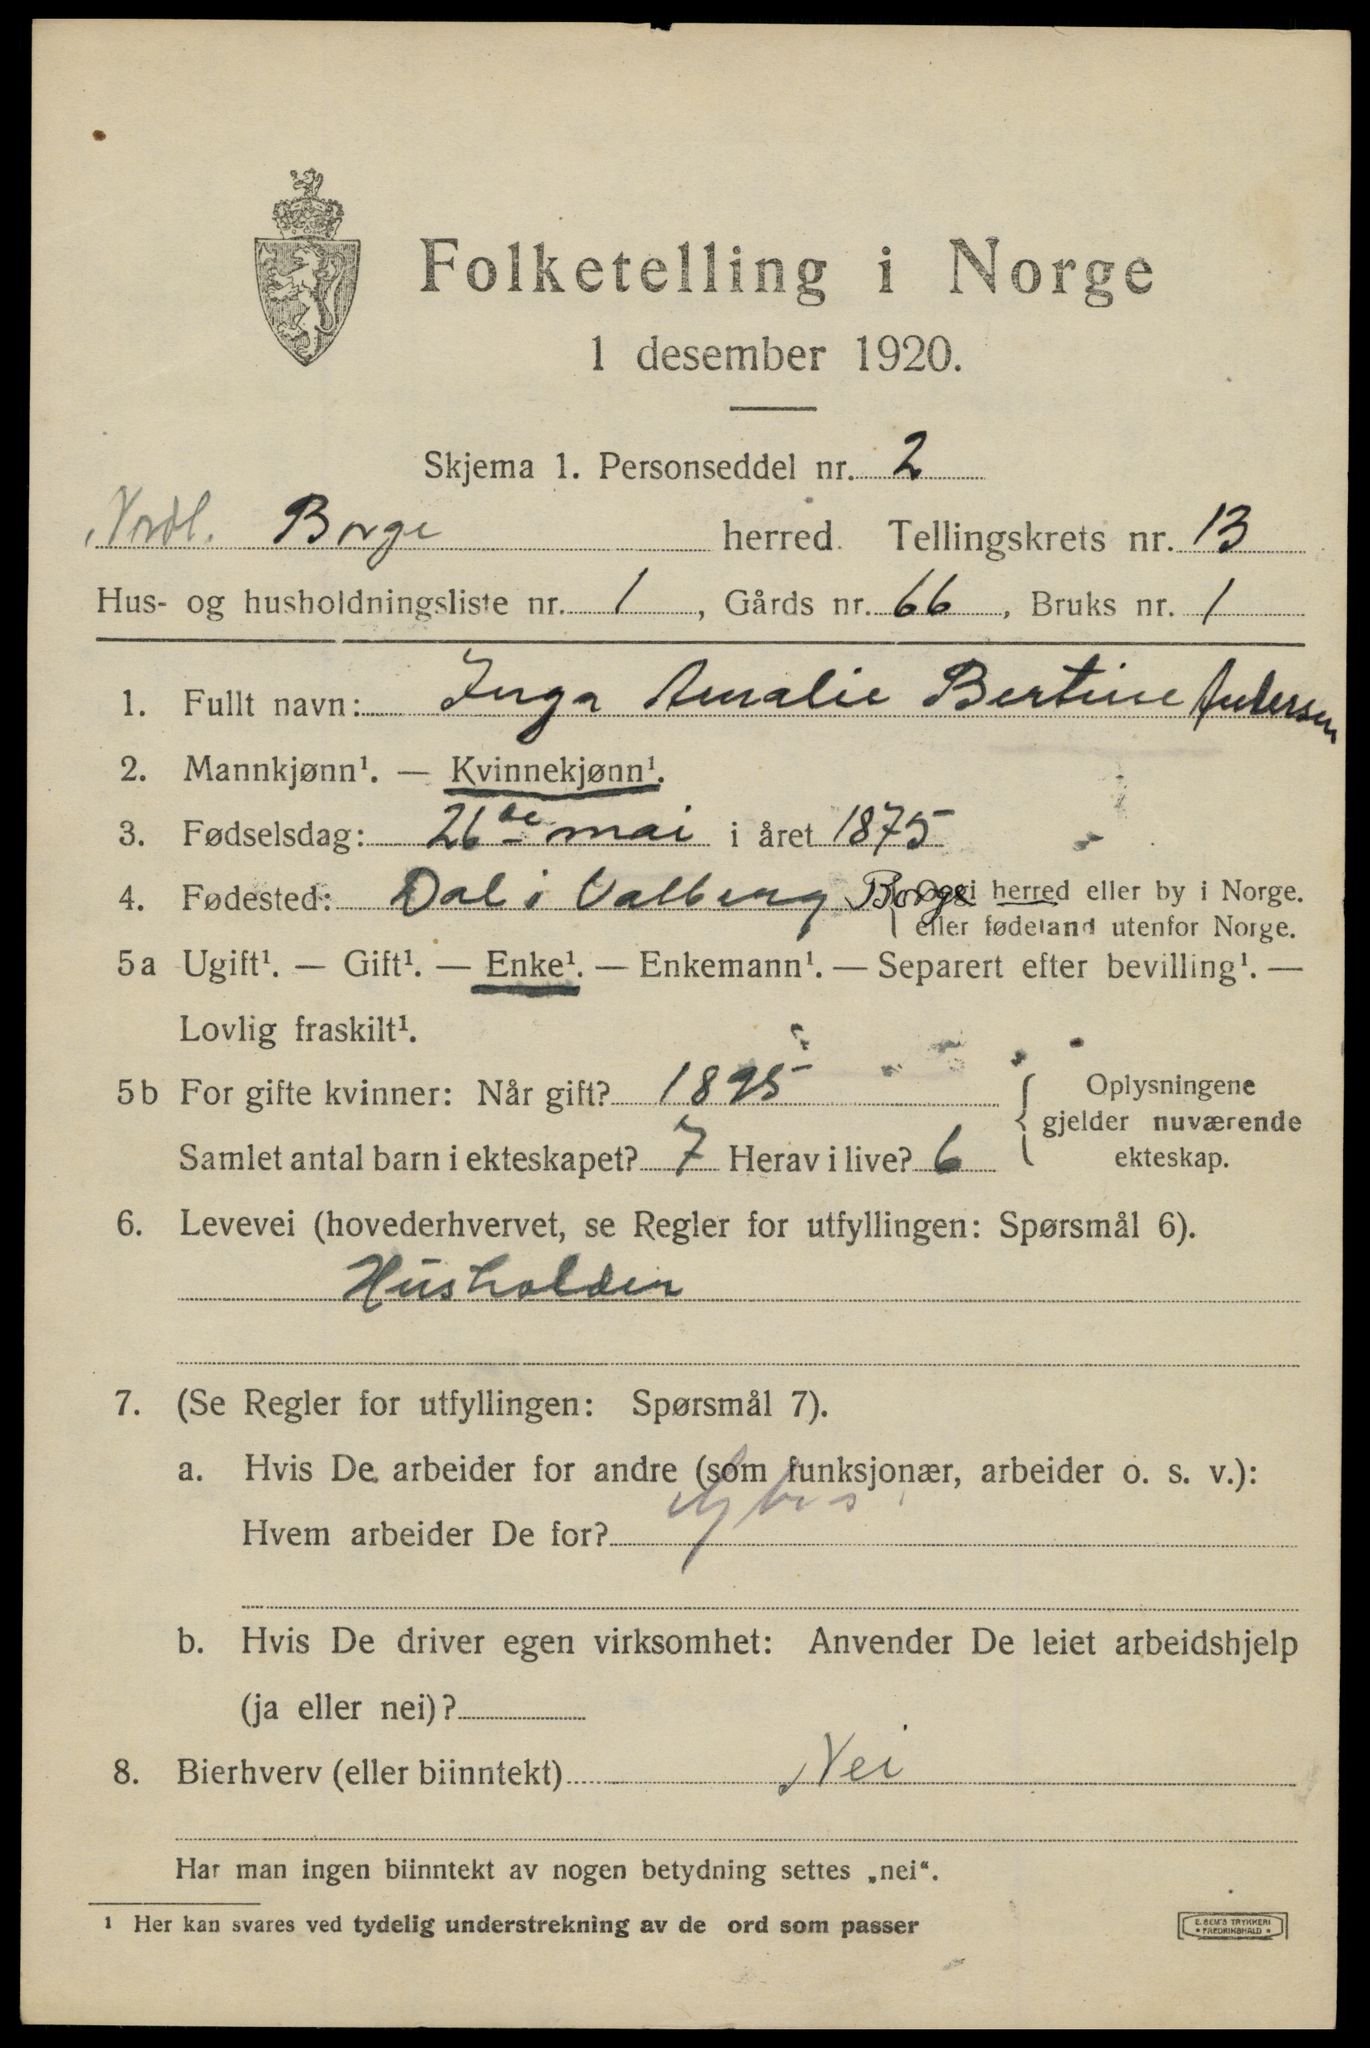 Folketelling i Norge
1 desember 1920.
Skjema 1. Personseddel nr. 2
Nordl. Borge herred. Tellingskrets nr. 13
Hus- og husholdningsliste nr. 1, Gårds nr. 66, Bruks nr. 1
1. Fullt navn: Inga Amalie Bertine Andersen
2. Mannkjønn¹. — Kvinnekjønn¹.
3. Fødselsdag: 26de mai i året 1875
4. Fødested: Dal i Valberg Borge { Opgi herred eller by i Norge.
eller fødeland utenfor Norge.
5a Ugift¹. — Gift¹. — Enke¹. — Enkemann¹. — Separert efter bevilling¹. —
Lovlig fraskilt¹.
5b For gifte kvinner: Når gift? 1895
Samlet antal barn i ekteskapet? 7 Herav i live? 6
{ Oplysningene
gjelder nuværende
ekteskap.
6. Levevei (hovederhvervet, se Regler for utfyllingen: Spørsmål 6).
Husholder
7. (Se Regler for utfyllingen: Spørsmål 7).
a. Hvis De arbeider for andre (som funksjonær, arbeider o. s. v.):
Hvem arbeider De for?
b. Hvis De driver egen virksomhet: Anvender De leiet arbeidshjelp
(ja eller nei)?
8. Bierhverv (eller biinntekt) Nei
Har man ingen biinntekt av nogen betydning settes „nei“.
¹ Her kan svares ved tydelig understrekning av de ord som passer
E. SEM'S TRYKKERI
* FREDRIKSHALD *